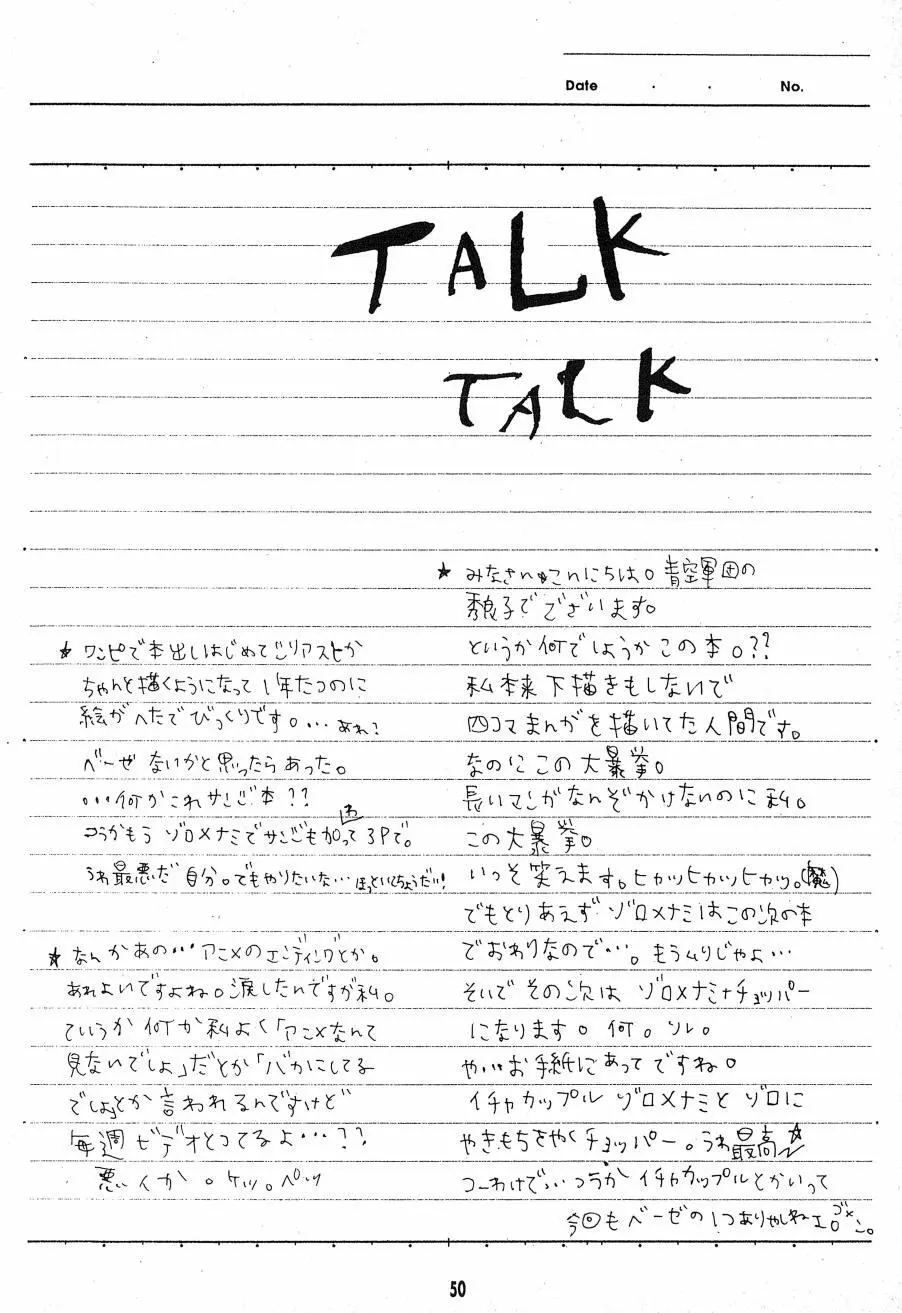 Date . . No.
TALK
TALK
★ みなさんこんにちは。青空軍団の
秀良子でございます。
というか何でしょうかこの本。??
私本来下描きもしないで
四コマまんがを描いてた人間です。
なのにこの大暴挙。
長いマンガなんぞかけないのに私。
この大暴挙。
いっそ笑えます。ヒカッヒカッヒカッ。(魔)
でもとりあえずゾロ×ナミはこの次の本
でおわりなので…。もうムリじゃよ…
そいでその次はゾロ×ナミ+チョッパー
になります。何。ソレ。
や…お手紙にあってですね。
イチャカップルゾロ×ナミとゾロに
やきもちをやくチョッパー。うわ最高☆
つーわけで…つうかイチャカップルとかいって
今回もベーゼの1つありゃしねェ。ゴメン。
★ ワンピで本出しはじめて
ちゃんと描くようになって1年たつのに
絵がへたでびっくりです。…あれ?
ベーゼないかと思ったらあった。
…何かこれサンジ本??
つうかもうゾロ×ナミでサンジも加わって3Pで。
うわ最悪だ自分。でもやりたいな…ほっといてちょうだい!
★ なんかあの…アニメのエンディングとか。
あれよいですよね。涙したんですが私。
ていうか何か私よく「アニメなんて
見ないでしょ」だとか「バカにしてる
でしょ」とか言われるんですけど
毎週ビデオとってるよ…??
悪いか。ケッ。ペッ
50